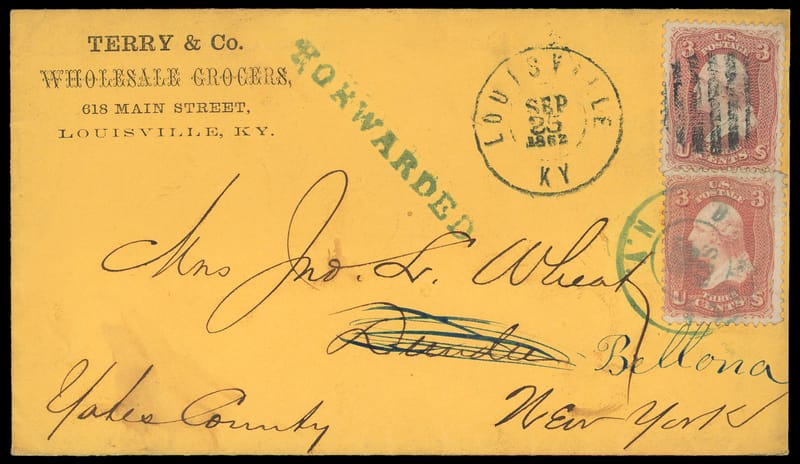 TERRY & Co.
WHOLESALE GROCERS,
618 MAIN STREET,
LOUISVILLE, KY.
FORWARDED
LOUISVILLE
SEP
25
1862
KY
3 U.S. 3
POSTAGE
U CENTS S
3 U.S. 3
POSTAGE
THREE
U CENTS S
N.Y.
Mrs Jno. L. Wheat
Dundee Bellona
Yates County New York